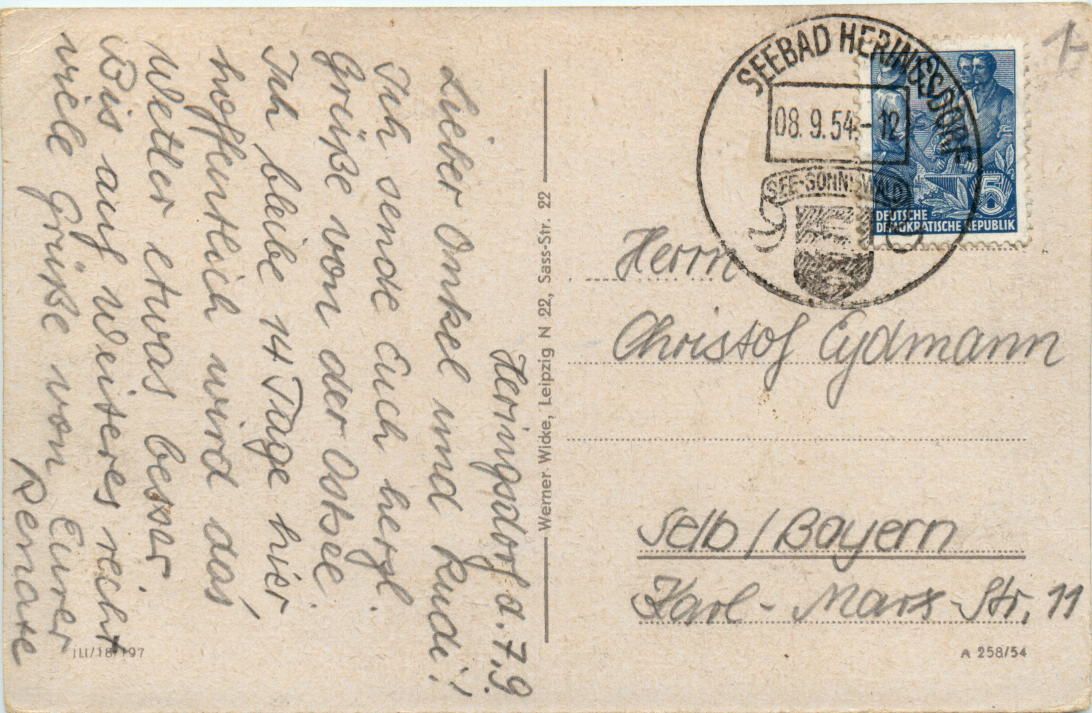 Heringsdorf d. 7.9.
Lieber Onkel und Rudi!
Ich sende Euch herzl.
Grüße von der Ostsee.
Ich bleibe 14 Tage hier
hoffentlich wird das
Wetter etwas besser.
Bis auf Weiteres recht
viele Grüße von Eurer
Renate
III/18/197
Werner Wicke, Leipzig N 22, Sass-Str. 22
SEEBAD HERINGSDORF
08.9.54.-12
SEE-SONNE-WALD
5
DEUTSCHE
DEMOKRATISCHE REPUBLIK
Herrn
Christof Eydmann
Selb/Bayern
Karl-Marx-Str. 11
A 258/54